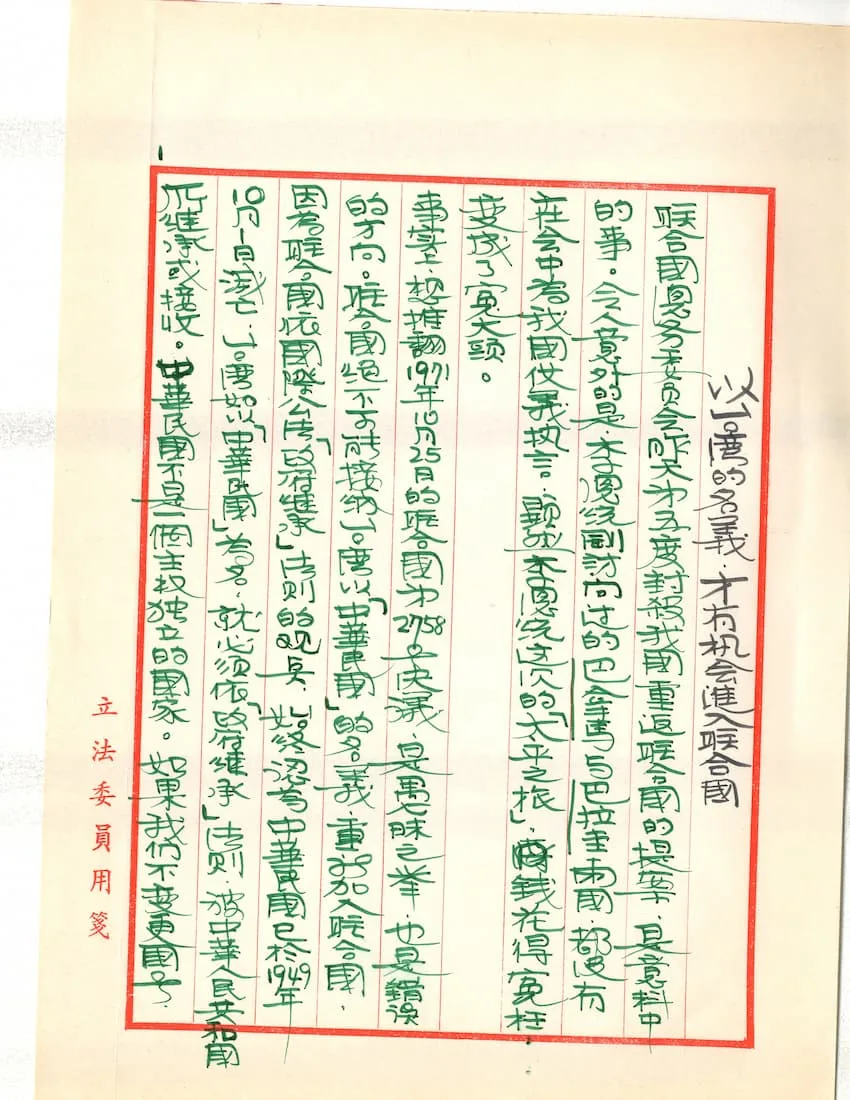 以台湾的名義，才有机会進入联合國
联合國总务委員会昨天第五度封殺我國重返联合國的提案，是意料中
的事。令人意外的是李总统剛訪问过的巴拿馬与巴拉圭兩國，都没有
在会中為我國仗義执言，顯然李总统这次的「太平之旅」，錢花得冤枉
变成了冤大头。
事实上，想推翻1971年10月25日的联合國第2758号决議，是愚昧之举，也是錯误
的方向。联合國绝不可能接纳台湾以「中華民國」的名義，重新加入联合國，
因為联合國依國際公法「政府继承」法则的观点，始终認為中華民國已於1949年
10月1日滅亡，台湾如以「中華民國」為名，就必须依「政府继承」法则，被中華人民共和國
所继承或接收。中華民國不是一個主权独立的國家。如果我們不变更國号，
立法委員用箋